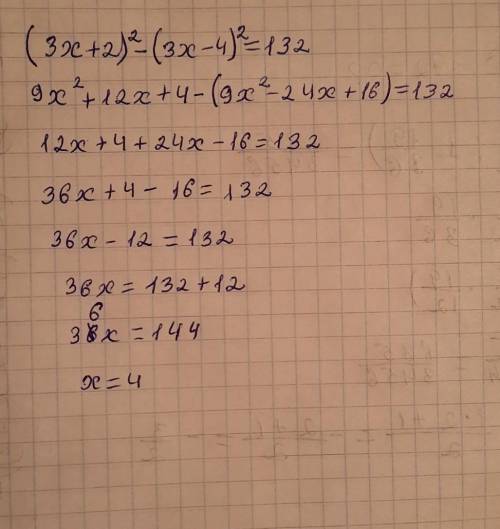 (3x+2)²-(3x-4)²=132
9x²+12x+4-(9x²-24x+16)=132
12x+4+24x-16=132
36x+4-16=132
36x-12=132
36x=132+12
36x=144
x=4